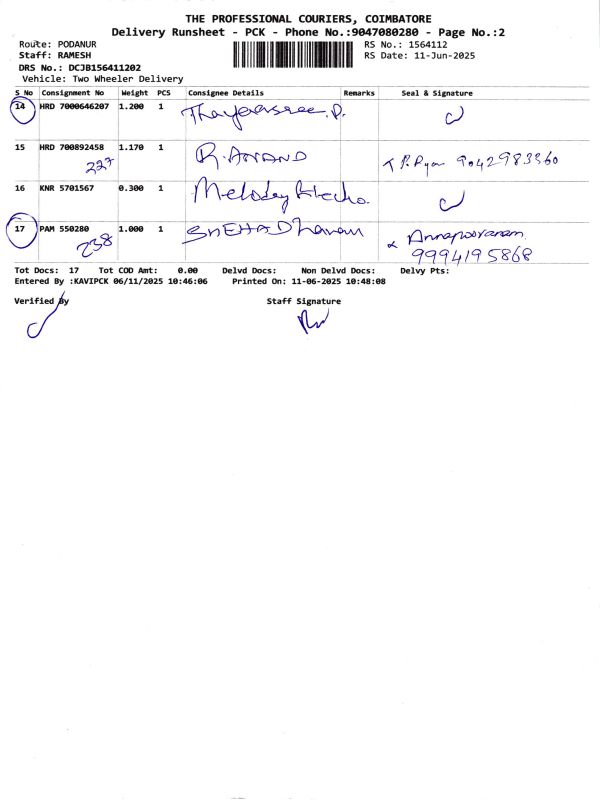 THE PROFESSIONAL COURIERS, COIMBATORE
Delivery Runsheet - PCK - Phone No.:9047080280 - Page No.:2
Route: PODANUR RS No.: 1564112
Staff: RAMESH RS Date: 11-Jun-2025
DRS No.: DCJB156411202
Vehicle: Two Wheeler Delivery
S No Consignment No Weight PCS Consignee Details Remarks Seal & Signature
14 HRD 7000646207 1.200 1
15 HRD 700892458 1.170 1 R. ANAND 9042983360
227
16 KNR 5701567 0.300 1
17 PAM 550280 1.000 1 SNEHA Dharani Annapooranam
238 9994195868
Tot Docs: 17 Tot COD Amt: 0.00 Delvd Docs: Non Delvd Docs: Delvy Pts:
Entered By :KAVIPCK 06/11/2025 10:46:06 Printed On: 11-06-2025 10:48:08
Verified By Staff Signature